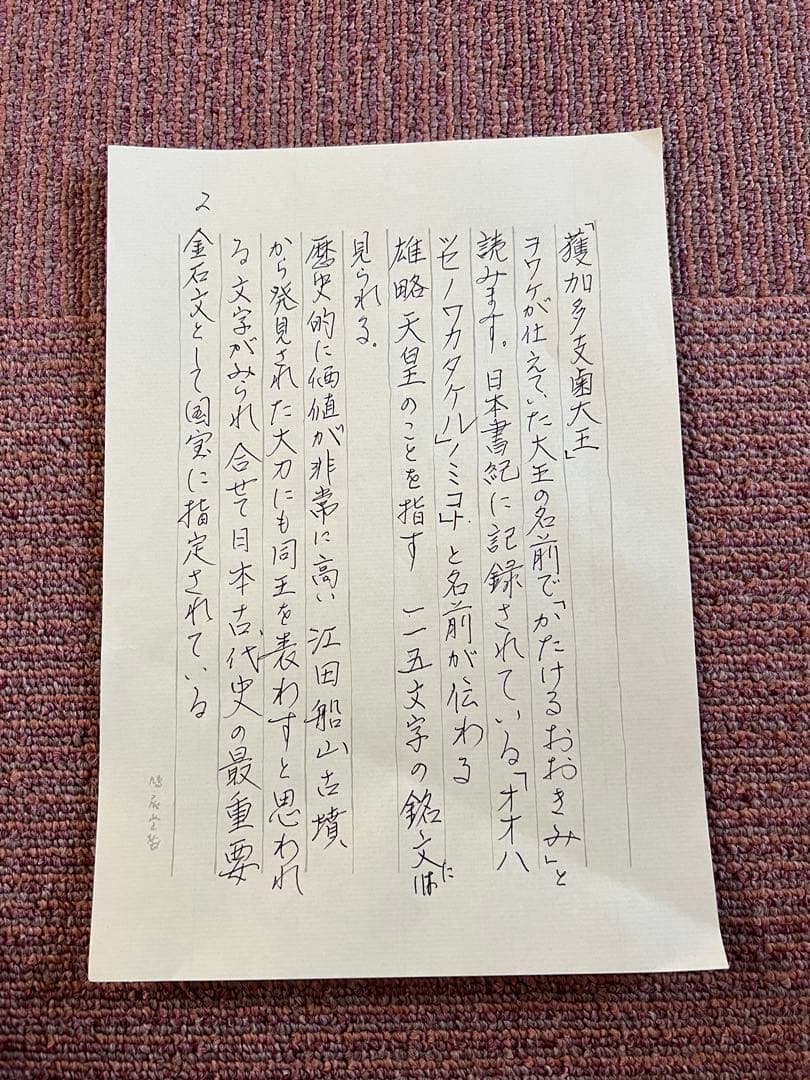 「獲加多支鹵大王」
ヲワケが仕えていた大王の名前で「かたけるおおきみ」と
読みます。日本書紀に記録されている「オオハ
ツセノワカタケル」ノミコト」と名前が伝わる
雄略天皇のことを指す 一一五文字の銘文
見られる。
歴史的に価値が非常に高い 江田船山古墳、
から発見された大刀にも同王を表わすと思われ
る文字がみられ 合せて日本古代史の最重要
金石文として国宝に指定されている
2
鳩居堂製